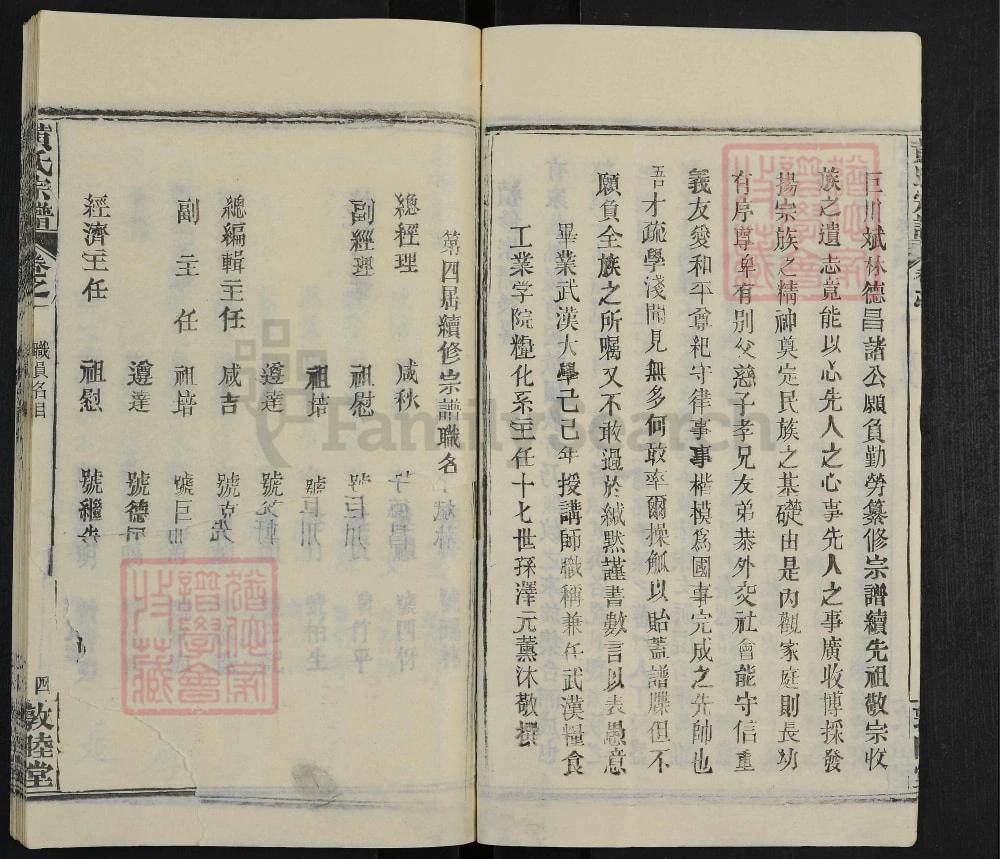 巨川斌林德昌諸公願負勤勞纂修宗譜續先祖敬宗收
族之遺志竟能以心先人之心事先人之事廣收博採發
揚宗族之精神奠定民族之基礎由是內觀家庭則長幼
有序尊卑有別父慈子孝兄友弟恭外交社會能守信重
義友愛和平尊紀守律事事楷模為國事完成之先師也
吾才疏學淺聞見無多何敢率爾操觚以貽蓋譜牒但不
願負全族之所嘱又不敢過於緘默謹書數言以表愚意
畢業武漢大學己己年授講師職稱兼任武漢糧食
工業学院糧化系主任十七世孫澤元薰沐敬撰
第四屆續修宗譜職名
總經理 咸秋
副經理 祖慰 號巨川
祖培
遵達 號文博
總編輯主任 咸吉 號克
副主任 祖培 號巨川
遵達 號德
經濟主任 祖慰 號繼先
黃氏宗譜 卷之一 職員名目 四 敦陸堂
FamilySearch